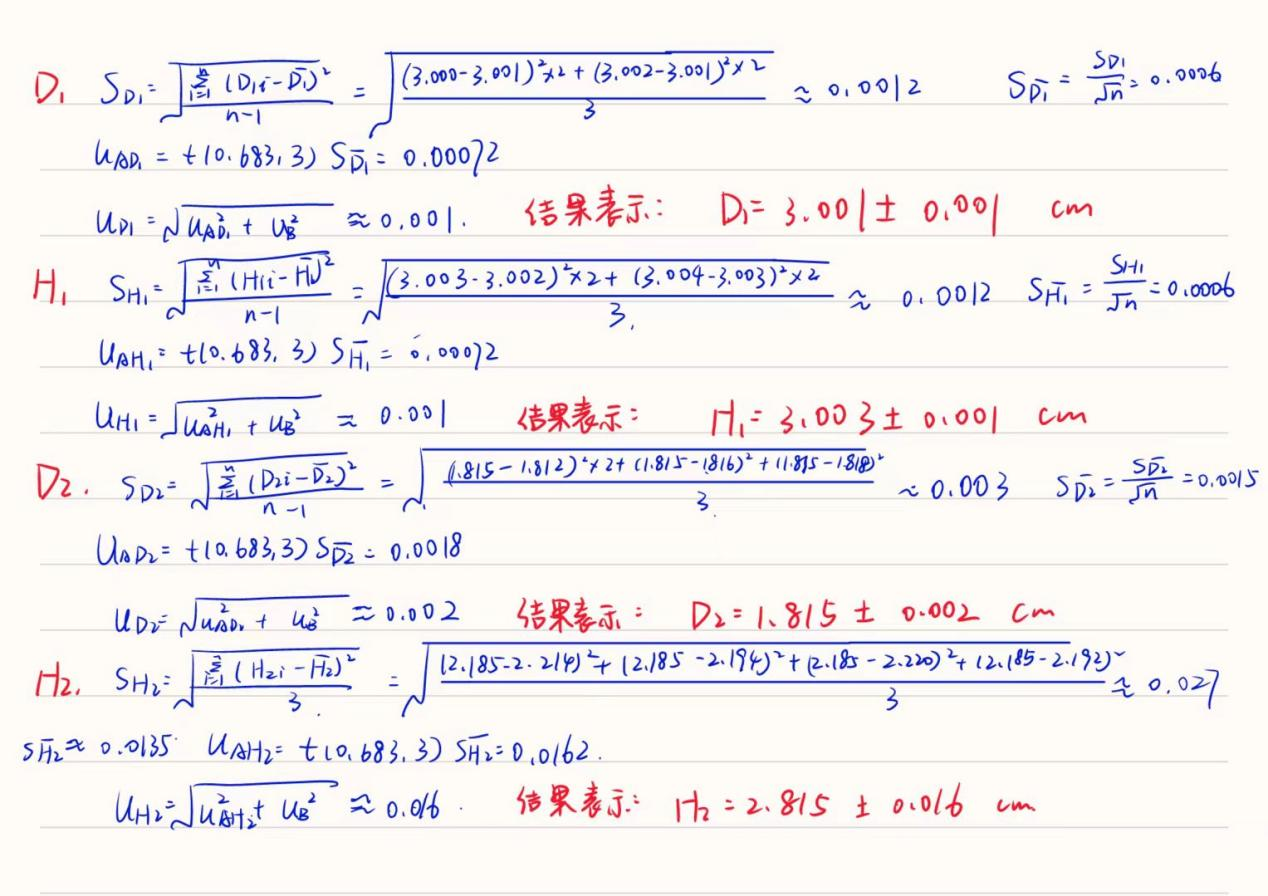 D₁ S_{D₁} = √(Σ_{i=1}^{n} (D₁ᵢ - D̄₁)² / (n-1)) = √(((3.000 - 3.001)² × 2 + (3.002 - 3.001)² × 2) / 3) ≈ 0.0012 S_{D̄₁} = S_{D₁}/√n = 0.0006
U_{AD₁} = t(0.683, 3) S_{D̄₁} = 0.00072
U_{D₁} = √(U_{AD₁}² + U_B²) ≈ 0.001. 结果表示: D₁ = 3.001 ± 0.001 cm
H₁ S_{H₁} = √(Σ_{i=1}^{n} (H₁ᵢ - H̄₁)² / (n-1)) = √(((3.003 - 3.002)² × 2 + (3.004 - 3.003)² × 2) / 3.) ≈ 0.0012 S_{H̄₁} = S_{H₁}/√n = 0.0006
U_{AH₁} = t(0.683, 3) S_{H̄₁} = 0.00072
U_{H₁} = √(U_{AH₁}² + U_B²) ≈ 0.001 结果表示: H₁ = 3.003 ± 0.001 cm
D₂. S_{D₂} = √(Σ_{i=1}^{n} (D₂ᵢ - D̄₂)² / (n-1)) = √(((1.815 - 1.812)² × 2 + (1.815 - 1.816)² + (1.815 - 1.818)²) / 3.) ≈ 0.003 S_{D̄₂} = S_{D̄₂}/√n = 0.0015
U_{AD₂} = t(0.683, 3) S_{D̄₂} = 0.0018
U_{D₂} = √(U_{AD₂}² + U_B²) ≈ 0.002 结果表示: D₂ = 1.815 ± 0.002 cm
H₂. S_{H₂} = √(Σ_{i=1} (H₂ᵢ - H̄₂)² / 3.) = √(((2.185 - 2.214)² + (2.185 - 2.194)² + (2.185 - 2.220)² + (2.185 - 2.192)²) / 3) ≈ 0.027
S_{H̄₂} ≈ 0.0135 U_{AH₂} = t(0.683, 3) S_{H̄₂} = 0.0162.
U_{H₂} = √(U_{AH₂}² + U_B²) ≈ 0.016. 结果表示: H₂ = 2.815 ± 0.016 cm